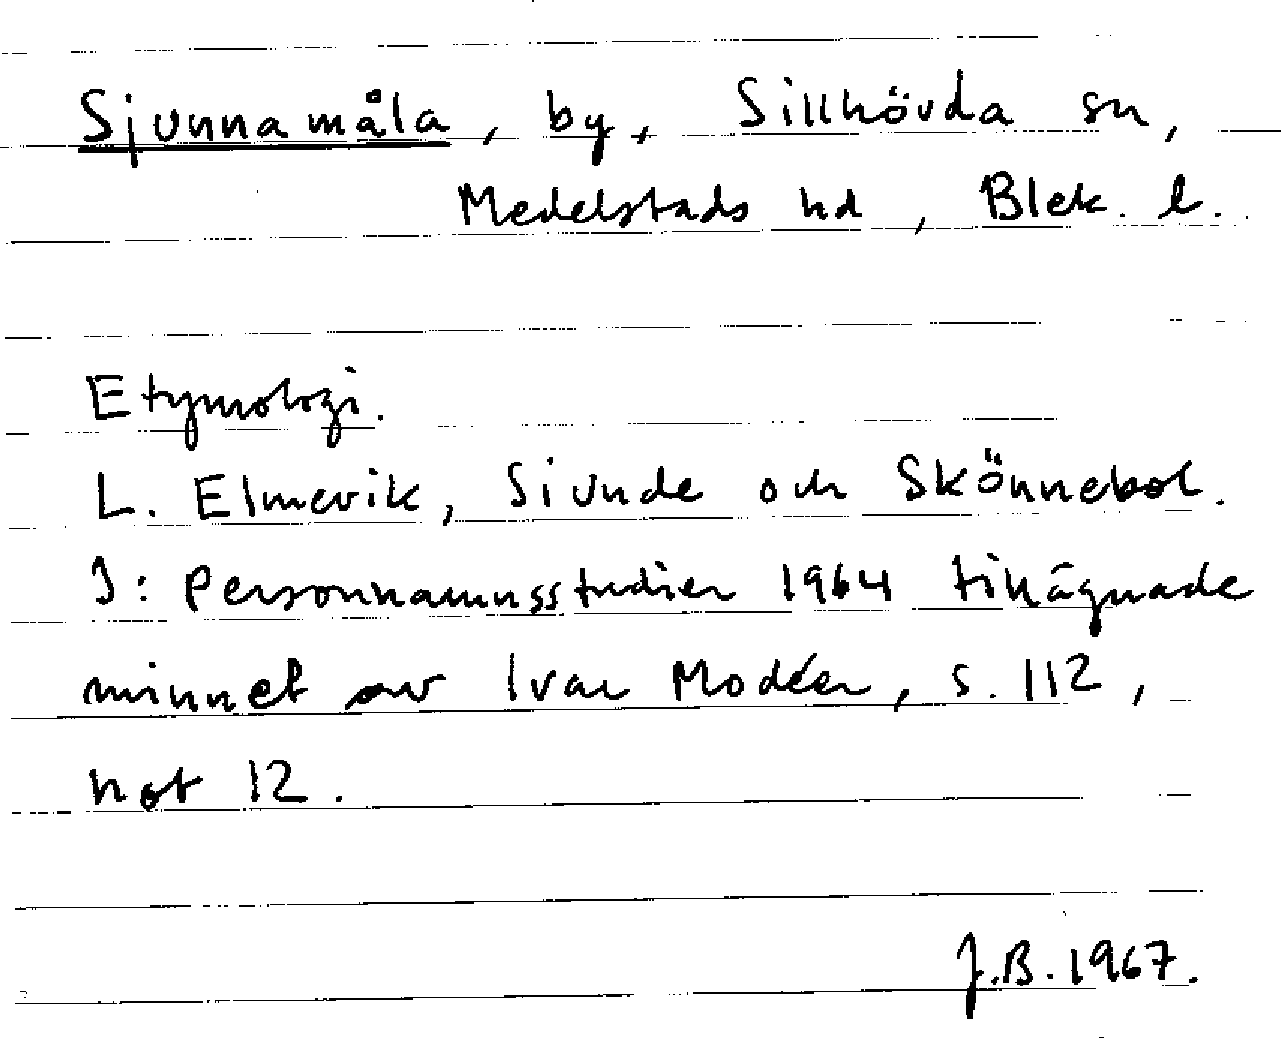 Sjunnamåla, by, Sillhövda sn,
Medelstads hd, Blek. l.
Etymologi.
L. Elmevik, Siunde och Skönnebol.
I: Personnamnsstudier 1964 tillägnade
minnet av Ivar Modéer, s. 112,
not 12.
J.B. 1967.